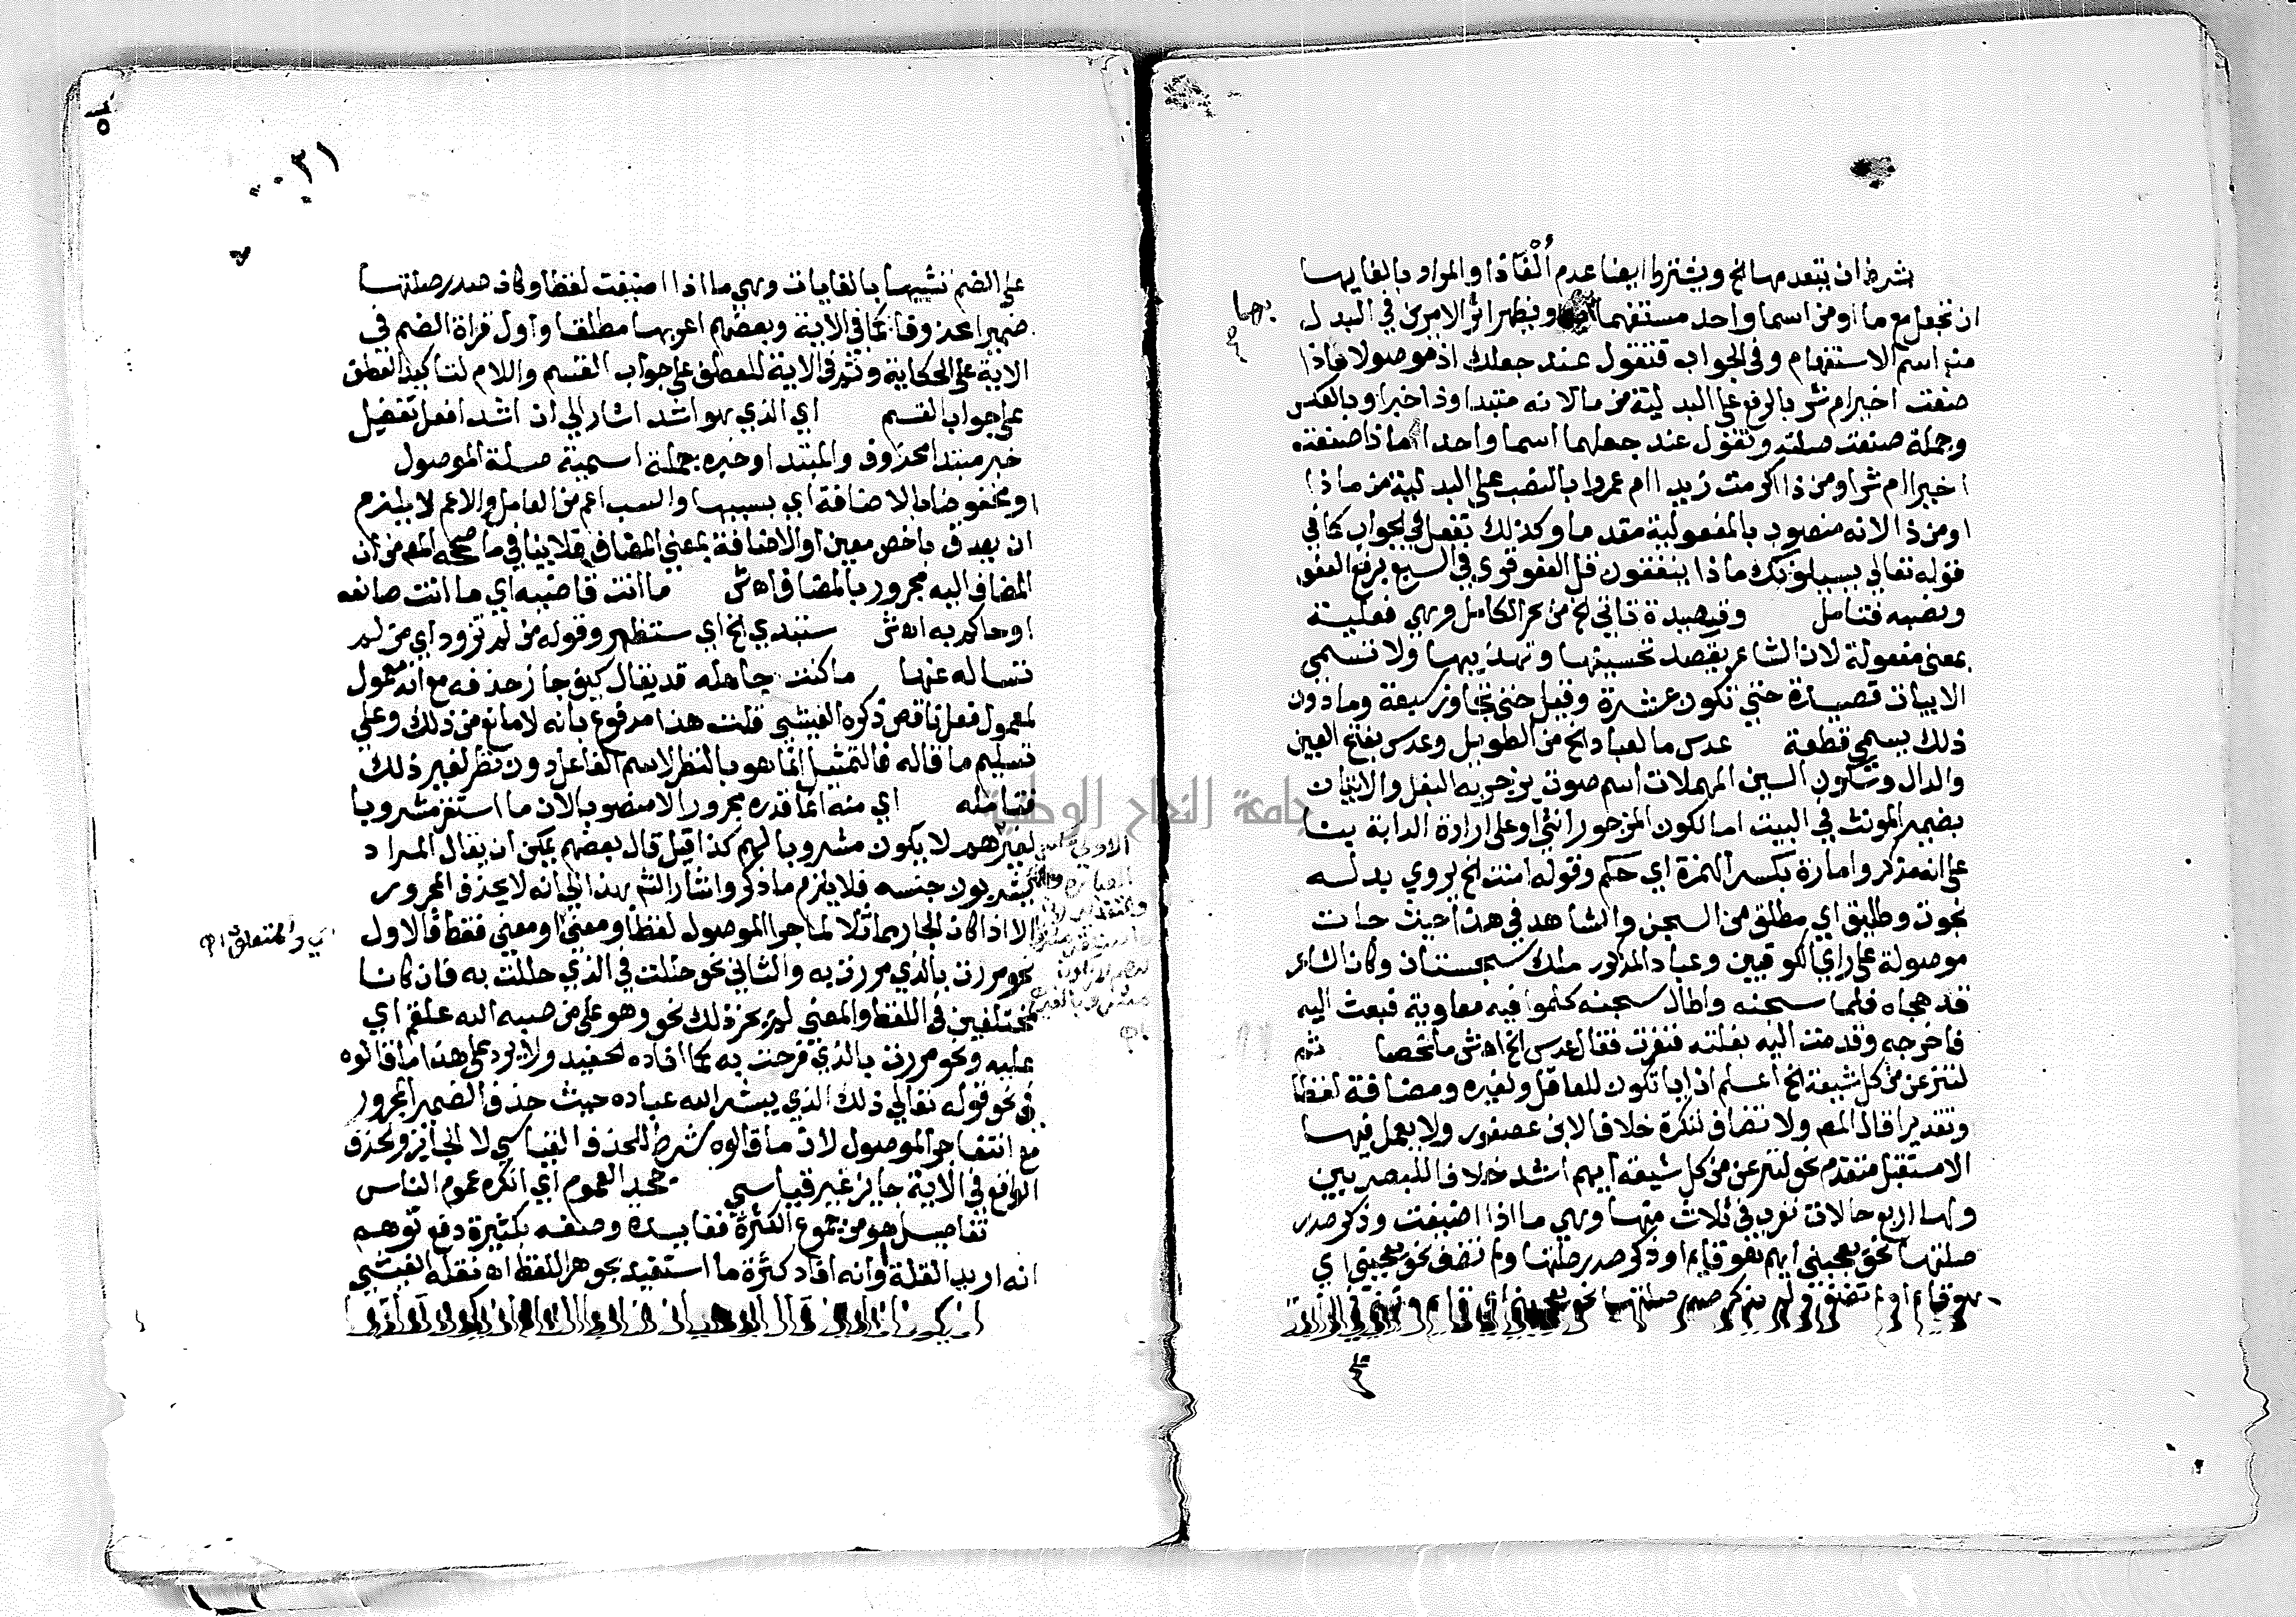 بشرط ان يتقدمها الخ ويشترط ايضا عدم الْغَاذا والمراد بالغايها
ان تجعل مع ما او من اسما واحد مستفهما ويظهر اثر الامرين في البدل
بهما
منه اسم الاستفهام وفي الجواب فتقول عند جعلك اذ موصولا ماذا
صنعت اخير ام شر بالرفع على البدلية من ما لانه مبتدا وذا خبر او بالعكس
وجملة صنعت صلة وتقول عند جعلهما اسما واحدا ماذا صنعت
اخيرا ام شرا ومن ذا اكرمت زيدا ام عمروا بالنصب على البدلية من ماذا
او من ذا لانه منصوب بالمفعولية مقدما وكذلك تفعل في الجواب كما في
قوله تعالي يسيلونك ماذا ينفقون قل العفو قري في السبع برفع العفو
ونصبه فتامل وقصيدة تاتي الخ من بحر الكامل وهي فعلية
بمعنى مفعولة لان الشاعر يقصد تحسينها وتهذيبها ولا تسمي
الابيات قصيدة حتي تكون عشرة وقيل حتى تجاوز سبعة وما دون
ذلك يسمي قطعة عدس ما لعباد الخ من الطويل وعدس بفتح العين
والدال وسكون السين المهملات اسم صوت يزجر به البغل والاتيان
بضمير المونث في البيت اما لكون المزجور انثي او على ارادة الدابة بنا
على انه مذكر وامارة بكسر الهمزة اي حكم وقوله امنت الخ يروي بدله
نجوت وطليق اي مطلق من السجن والشاهد في هذا حيث جات
موصولة على راي الكوفيين وعباد المذكور ملك سجستان وكان الشاعر
قد هجاه فلما سجنه واطال سجنه كلموا فيه معاوية فبعث اليه
فاخرجه وقدمت اليه بغلته فنفرت فقال عدس الخ اه ش ملخصا ثم
لننزعن من كل شيعة الخ اعلم ان ايا تكون للعاقل ولغيره ومضافة لفظا
وتقديرا قال المص ولا تضاف لنكرة خلافا لابن عصفور ولا يعمل فيها
الا مستقبل متقدم نحو لننزعن من كل شيعة ايهم اشد خلافا للبصريين
ولها اربع حالات تعرب في ثلاث منها وهي ما اذا اضيفت وذكر صدر
صلتها نحو يعجبني ايهم هو قايم او ذكر صدر صلتها ولم تضف نحو يعجبني اي
هو قايم او لم تضف ولم يذكر صدر صلتها نحو يعجبني اي قايم وتبني في الرابعة
على الضم تشبيها بالغايات وهي ما اذا اضيفت لفظا وكان صدر صلتها
ضميرا محذوفا كما في الاية وبعضهم اعربها مطلقا واول قراة الضم في
الاية على الحكاية وثم في الاية للعطف على جواب القسم واللام لتاكيد العطف
على جواب القسم اي الذي هو اشد اشار الي ان اشد افعل تفضيل
خبر مبتدا محذوف والمبتدا وخبره جملة اسمية صلة الموصول
او مخفوضا بالاضافة اي بسببها والسبب اعم من العامل والاعم لا يلزم
ان يصدق باخص معين او الاضافة بمعني المضاف فلا ينافي ما صححه المص من ان
المضاف اليه مجرور بالمضاف اه ش ما انت قاضيه اي ما انت صانعه
او حاكم به اه ش ستبدي الخ اي ستظهر وقوله من لم تزود اي من لم
تساله عنها ما كنت جاهله قد يقال كيف جاز حذفه مع انه معمول
لمعمول فعل ناقص ذكره الفيشي قلت هذا مدفوع بانه لا مانع من ذلك وعلي
تسليم ما قاله فالتمثيل انما هو بالنظر لاسم الفاعل دون نظر لغير ذلك
فتامله اي منه انما قدره مجرورا لا منصوبا لان ما استقر مشروبا
لغيرهم لا يكون مشروبا لهم كذا قيل قال بعضهم يمكن ان يقال المراد
يشربون جنسه فلا يلزم ما ذكر واشار الشم بهذا الي انه لا يحذف المجرور
الا اذا كان الجار مماثلا لما جر الموصول لفظا ومعني او معني فقط فالاول
ي والمتعلق اه
نحو مررت بالذي مررت به والثاني نحو حللت في الذي حللت به فان كانا
مختلفين في اللفظ والمعني لم يجز ذلك نحو وهو على من صبه الله علقم اي
عليه ونحو مررت بالذي فرحت به كما افاده الحفيد ولا يرد على هذا ما قالوه
في نحو قوله تعالي ذلك الذي يبشر الله عباده حيث حذف الضمير المجرور
مع انتفا جر الموصول لان ما قالوه شرط للحذف القياسي لا الجايز والحذف
الواقع في الاية جايز غير قياسي جحد العموم اي انكره عموم الناس
تفاصيل هو من جموع الكثرة ففايدة وصفه بكثيرة دفع توهم
انه اريد القلة وانه افاد كثرة ما استفيد بجوهر اللفظ اه نقله الفيشي